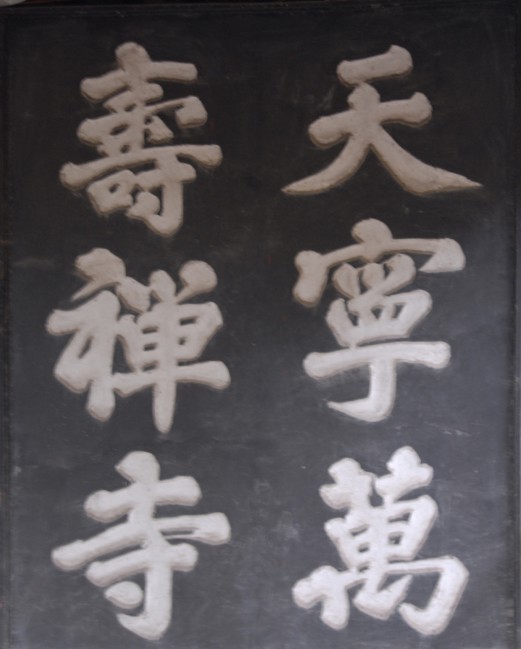 天寧萬
壽禅寺